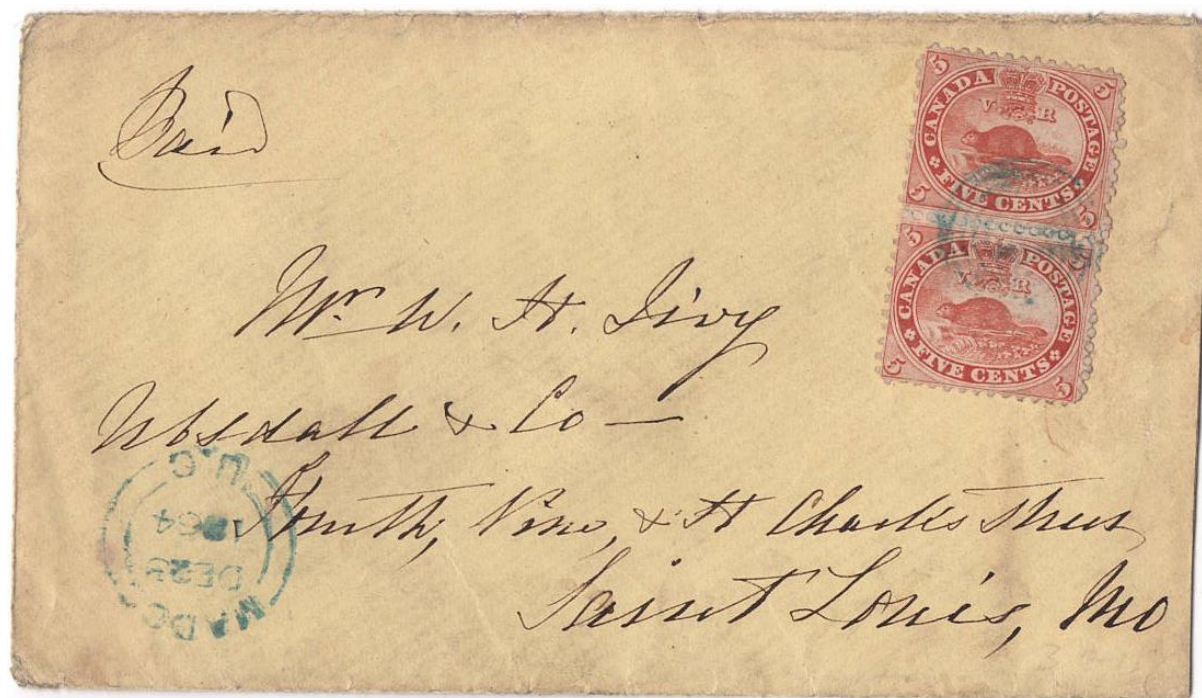 Paid
5 CANADA POSTAGE 5
V R
5 FIVE CENTS 5
5 CANADA POSTAGE 5
V R
5 FIVE CENTS 5
Mr. W. H. Ivory
Ubsdall & Co —
Fourth, Vine, & St Charles Street
Saint Louis, Mo
MADOC
DE 28
1864
U.C